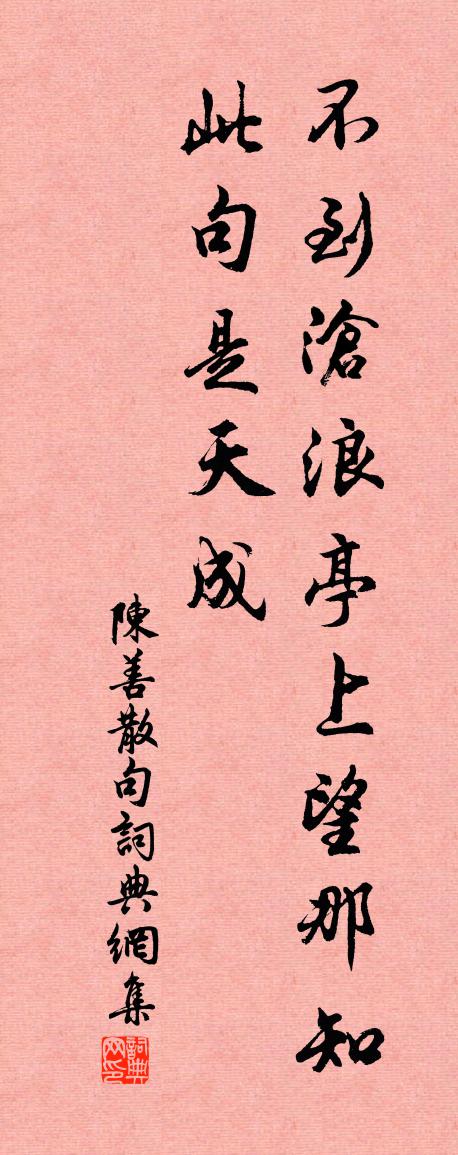 不到滄浪亭上望那知
此句是天成
陳善散句詞典網集
詞典网印